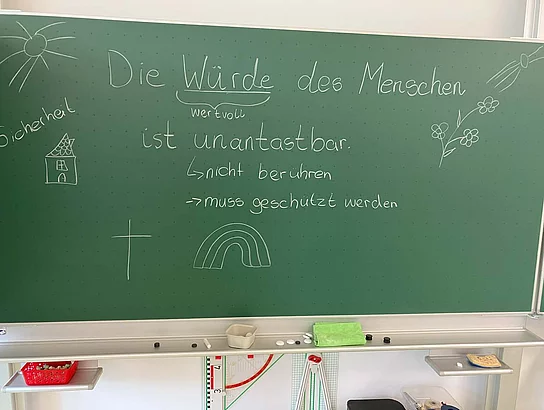 Die Würde des Menschen
wertvoll
Sicherheit
ist unantastbar.
↳nicht berühren
→muss geschützt werden